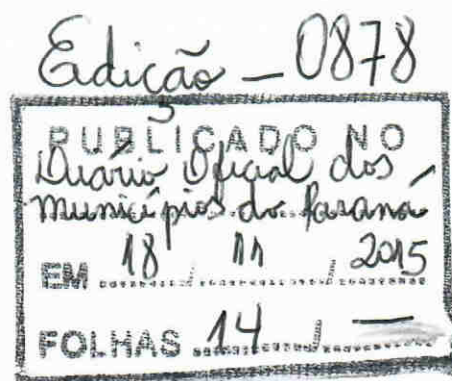 Edição - 0878
PUBLICADO NO
Diário Oficial dos
Municípios do Paraná
EM 18 / 11 / 2015
FOLHAS 14 / —